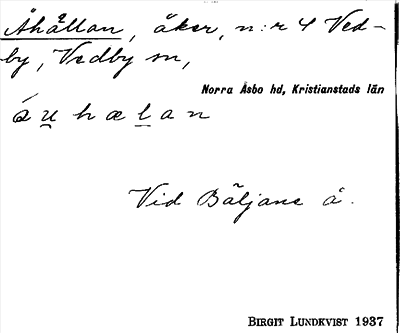 Åhållan, åker, n:r 4 Ved-
by, Vedby sn,
Norra Åsbo hd, Kristianstads län
áu h æ l a n
Vid Bäljane å.
BIRGIT LUNDKVIST 1937